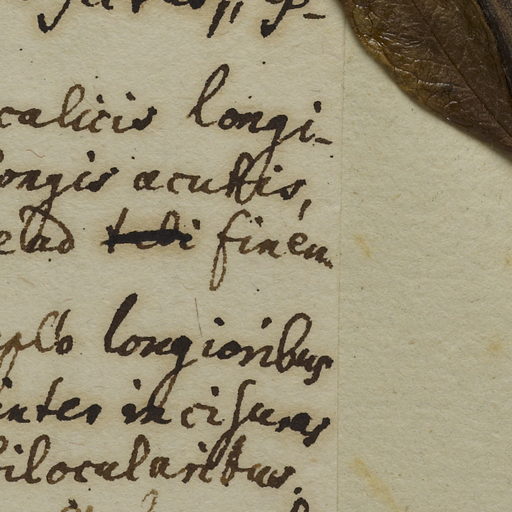 calicis longi-
longis acutis,
ad finem
longioribus
inter incisuras
bilocularibus.